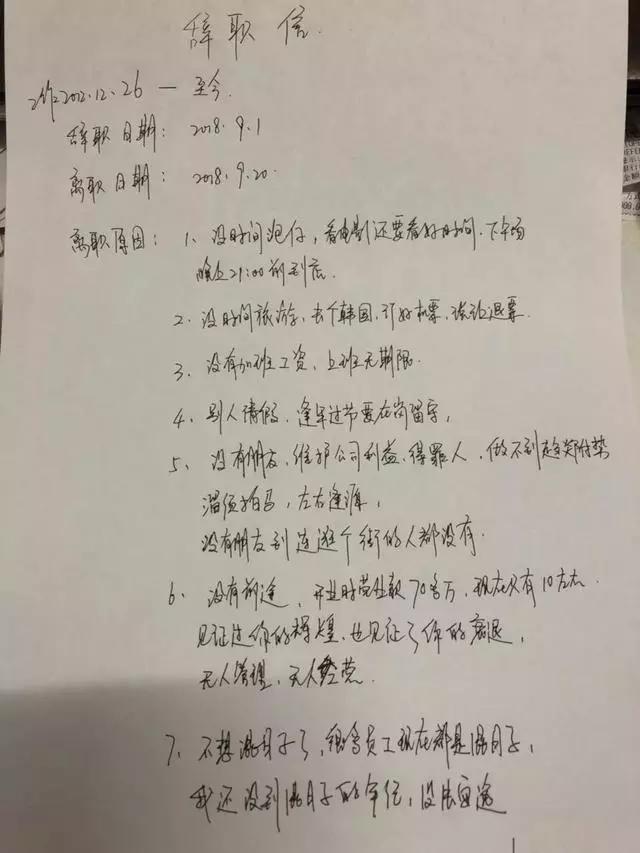 辞职信.
工作: 2012.12.26 — 至今.
辞职日期: 2018.9.1
离职日期: 2018.9.20.
离职原因: 1、没时间泡仔, 看电影还要看好时间. 下午场
晚上21:00前到底.
2. 没时间旅游, 去个韩国, 订好机票, 被迫退票.
3、没有加班工资, 上班无期限.
4、别人请假, 逢年过节要在岗留守,
5、没有朋友, 维护公司利益, 得罪人, 做不到趋炎附势
溜须拍马, 左右逢源,
没有朋友到连逛个街的人都没有.
6、没有前途, 开业时营业额70多万, 现在只有10左右.
见证过你的辉煌, 也见证了你的衰退,
无人管理, 无人经营.
7、不想混日子了, 很多员工现在都是混日子,
我还没到混日子的年纪,